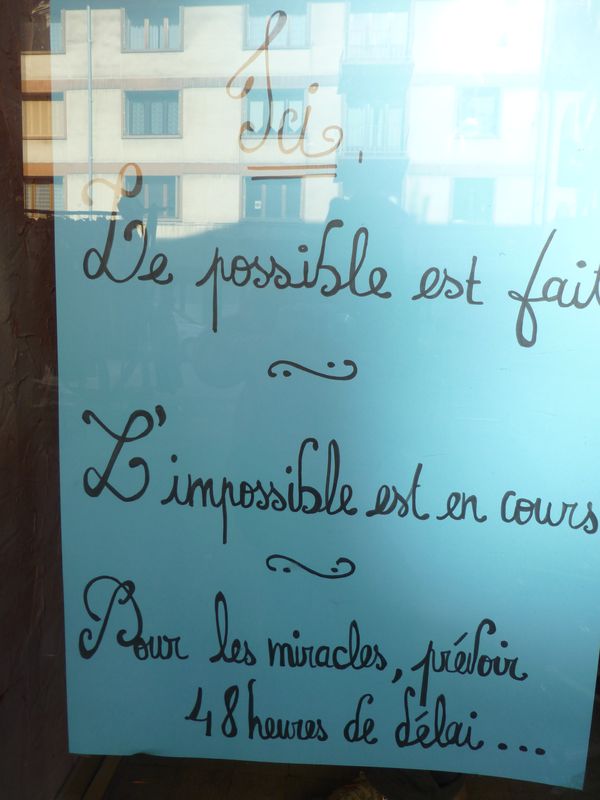 Ici,
Le possible est fait
L'impossible est en cours
Pour les miracles, prévoir
48 heures de délai...